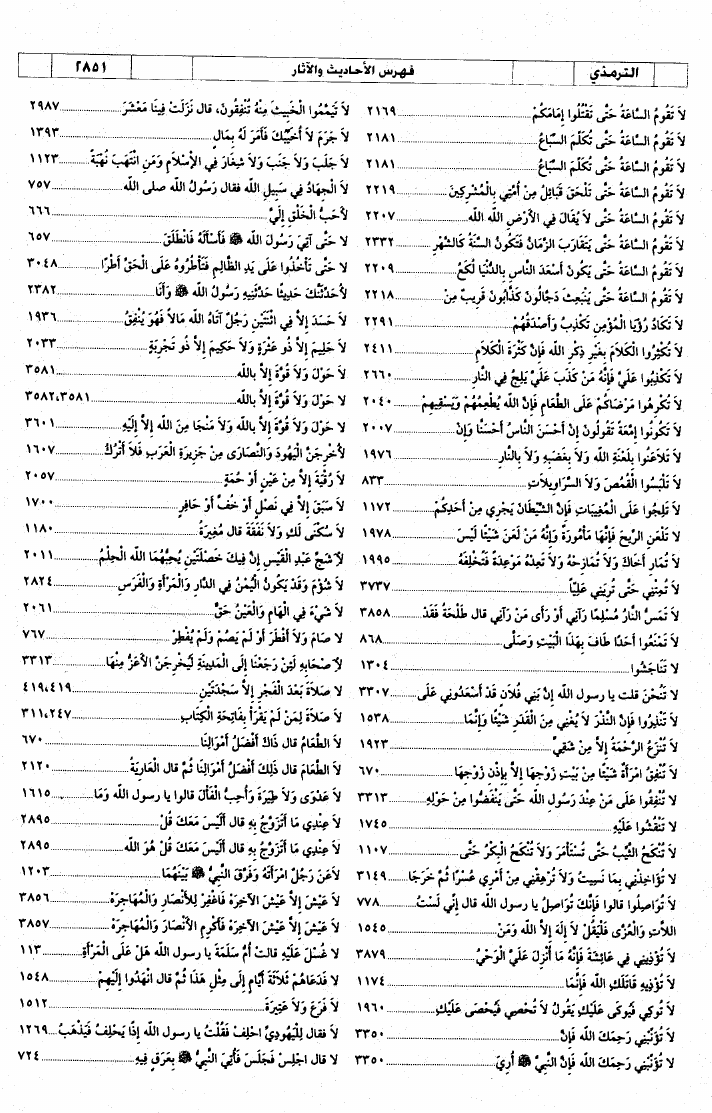 الترمذي
فهرس الأحاديث والآثار
٢٨٥١
لاَ تَقُومُ السَّاعَةُ حَتَّى تَقْتُلُوا إِمَامَكُمْ ٢١٦٩
لاَ تَقُومُ السَّاعَةُ حَتَّى تُكَلِّمَ السِّبَاعُ ٢١٨١
لاَ تَقُومُ السَّاعَةُ حَتَّى تُكَلِّمَ السِّبَاعُ ٢١٨١
لاَ تَقُومُ السَّاعَةُ حَتَّى تَلْحَقَ قَبَائِلُ مِنْ أُمَّتِي بِالْمُشْرِكِينَ ٢٢١٩
لاَ تَقُومُ السَّاعَةُ حَتَّى لاَ يُقَالَ فِي الأَرْضِ اللَّه اللَّه ٢٢٠٧
لاَ تَقُومُ السَّاعَةُ حَتَّى يَتَقَارَبَ الزَّمَانُ فَتَكُونُ السَّنَةُ كَالشَّهْرِ ٢٣٣٢
لاَ تَقُومُ السَّاعَةُ حَتَّى يَكُونَ أَسْعَدَ النَّاسِ بِالدُّنْيَا لُكَعُ ٢٢٠٩
لاَ تَقُومُ السَّاعَةُ حَتَّى يَنْبَعِثَ دَجَّالُونَ كَذَّابُونَ قَرِيبٌ مِنْ ٢٢١٨
لاَ تَكَادُ رُؤْيَا الْمُؤْمِنِ تَكْذِبُ وَأَصْدَقُهُمْ ٢٢٩١
لاَ تُكْثِرُوا الْكَلاَمَ بِغَيْرِ ذِكْرِ اللَّه فَإِنَّ كَثْرَةَ الْكَلاَمِ ٢٤١١
لاَ تَكْذِبُوا عَلَيَّ فَإِنَّهُ مَنْ كَذَبَ عَلَيَّ يَلِجُ فِي النَّارِ ٢٦٦٠
لاَ تُكْرِهُوا مَرْضَاكُمْ عَلَى الطَّعَامِ فَإِنَّ اللَّه يُطْعِمُهُمْ وَيَسْقِيهِمْ ٢٠٤٠
لاَ تَكُونُوا إِمَّعَةً تَقُولُونَ إِنْ أَحْسَنَ النَّاسُ أَحْسَنَّا وَإِنْ ٢٠٠٧
لاَ تَلاَعَنُوا بِلَعْنَةِ اللَّه وَلاَ بِغَضَبِهِ وَلاَ بِالنَّارِ ١٩٧٦
لاَ تَلْبَسُوا الْقُمُصَ وَلاَ السَّرَاوِيلاَتِ ٨٣٣
لاَ تَلِجُوا عَلَى الْمُغِيبَاتِ فَإِنَّ الشَّيْطَانَ يَجْرِي مِنْ أَحَدِكُمْ ١١٧٢
لا تَلْعَنِ الرِّيحَ فَإِنَّهَا مَأْمُورَةٌ وَإِنَّهُ مَنْ لَعَنَ شَيْئًا لَيْسَ ١٩٧٨
لاَ تُمَارِ أَخَاكَ وَلاَ تُمَازِحْهُ وَلاَ تَعِدْهُ مَوْعِدَةً فَتُخْلِفَهُ ١٩٩٥
لاَ تُمِتْنِي حَتَّى تُرِيَنِي عَلِيًّا ٣٧٣٧
لاَ تَمَسُّ النَّارُ مُسْلِمًا رَآنِي أَوْ رَأَى مَنْ رَآنِي قال طَلْحَةُ فَقَدْ ٣٨٥٨
لاَ تَمْنَعُوا أَحَدًا طَافَ بِهَذَا الْبَيْتِ وَصَلَّى ٨٦٨
لا تَنَاجَشُوا ١٣٠٤
لا تَنُحْنَ قلت يا رسول اللَّه إِنَّ بَنِي فُلاَنٍ قَدْ أَسْعَدُونِي عَلَى ٣٣٠٧
لاَ تَنْذِرُوا فَإِنَّ النَّذْرَ لاَ يُغْنِي مِنَ الْقَدَرِ شَيْئًا وَإِنَّمَا ١٥٣٨
لاَ تُنْزَعُ الرَّحْمَةُ إِلاَّ مِنْ شَقِيٍّ ١٩٢٣
لاَ تُنْفِقُ امْرَأَةٌ شَيْئًا مِنْ بَيْتِ زَوْجِهَا إِلاَّ بِإِذْنِ زَوْجِهَا ٦٧٠
لا تُنْفِقُوا عَلَى مَنْ عِنْدَ رَسُولِ اللَّه حَتَّى يَنْفَضُّوا مِنْ حَوْلِهِ ٣٣١٣
لا تَنْقُشُوا عَلَيْهِ ١٧٤٥
لاَ تُنْكَحُ الثَّيِّبُ حَتَّى تُسْتَأْمَرَ وَلاَ تُنْكَحُ الْبِكْرُ حَتَّى ١١٠٧
لا تُؤَاخِذْنِي بِمَا نَسِيتُ وَلاَ تُرْهِقْنِي مِنْ أَمْرِي عُسْرًا ثُمَّ خَرَجَا ٣١٤٩
لاَ تُوَاصِلُوا قالوا فَإِنَّكَ تُوَاصِلُ يا رسول اللَّه قال إِنِّي لَسْتُ ٧٧٨
اللاَّتِ وَالْعُزَّى فَلْيَقُلْ لاَ إِلَهَ إِلاَّ اللَّه وَمَنْ ١٥٤٥
لاَ تُؤْذِينِي فِي عَائِشَةَ فَإِنَّهُ مَا أُنْزِلَ عَلَيَّ الْوَحْيُ ٣٨٧٩
لاَ تُؤْذِيهِ قَاتَلَكِ اللَّه فَإِنَّمَا ١١٧٤
لاَ تُوكِي فَيُوكَى عَلَيْكِ يَقُولُ لاَ تُحْصِي فَيُحْصَى عَلَيْكِ ١٩٦٠
لا تُؤَنِّبْنِي رَحِمَكَ اللَّه فَإِنَّ ٣٣٥٠
لا تُؤَنِّبْنِي رَحِمَكَ اللَّه فَإِنَّ النَّبِيَّ ﷺ أُرِيَ ٣٣٥٠
لاَ تَيَمَّمُوا الْخَبِيثَ مِنْهُ تُنْفِقُونَ، قال نَزَلَتْ فِينَا مَعْشَرَ ٢٩٨٧
لاَ جَرَمَ لاَ أُخَيِّبُكَ فَأَمَرَ لَهُ بِمَالٍ ١٣٩٣
لاَ جَلَبَ وَلاَ جَنَبَ وَلاَ شِغَارَ فِي الإِسْلاَمِ وَمَنِ انْتَهَبَ نُهْبَةً ١١٢٣
لاَ الْجِهَادُ فِي سَبِيلِ اللَّه فقال رَسُولُ اللَّه صلى اللَّه ٧٥٧
لأَحَبُّ الْخَلْقِ إِلَيَّ ٦٦٦
لا حَتَّى آتِيَ رَسُولَ اللَّه ﷺ فَأَسْأَلَهُ فَانْطَلَقَ ٦٥٧
لا حَتَّى تَأْخُذُوا عَلَى يَدِ الظَّالِمِ فَتَأْطُرُوهُ عَلَى الْحَقِّ أَطْرًا ٣٠٤٨
لأُحَدِّثَنَّكَ حَدِيثًا حَدَّثَنِيهِ رَسُولُ اللَّه ﷺ وَأَنَا ٢٣٨٢
لاَ حَسَدَ إِلاَّ فِي اثْنَتَيْنِ رَجُلٌ آتَاهُ اللَّه مَالاً فَهُوَ يُنْفِقُ ١٩٣٦
لاَ حَلِيمَ إِلاَّ ذُو عَثْرَةٍ وَلاَ حَكِيمَ إِلاَّ ذُو تَجْرِبَةٍ ٢٠٣٣
لاَ حَوْلَ وَلاَ قُوَّةَ إِلاَّ باللَّه ٣٥٨١
لا حَوْلَ وَلاَ قُوَّةَ إِلاَّ باللَّه ٣٥٨٢،٣٥٨١
لا حَوْلَ وَلاَ قُوَّةَ إِلاَّ باللَّه وَلاَ مَنْجَا مِنَ اللَّه إِلاَّ إِلَيْهِ ٣٦٠١
لأُخْرِجَنَّ الْيَهُودَ وَالنَّصَارَى مِنْ جَزِيرَةِ الْعَرَبِ فَلاَ أَتْرُكُ ١٦٠٧
لاَ رُقْيَةَ إِلاَّ مِنْ عَيْنٍ أَوْ حُمَةٍ ٢٠٥٧
لاَ سَبَقَ إِلاَّ فِي نَصْلٍ أَوْ خُفٍّ أَوْ حَافِرٍ ١٧٠٠
لاَ سُكْنَى لَكِ وَلاَ نَفَقَةَ قال مُغِيرَةُ ١١٨٠
لأَشَجِّ عَبْدِ الْقَيْسِ إِنَّ فِيكَ خَصْلَتَيْنِ يُحِبُّهُمَا اللَّه الْحِلْمُ ٢٠١١
لاَ شُؤْمَ وَقَدْ يَكُونُ الْيُمْنُ فِي الدَّارِ وَالْمَرْأَةِ وَالْفَرَسِ ٢٨٢٤
لاَ شَيْءَ فِي الْهَامِ وَالْعَيْنُ حَقٌّ ٢٠٦١
لاَ صَامَ وَلاَ أَفْطَرَ أَوْ لَمْ يَصُمْ وَلَمْ يُفْطِرْ ٧٦٧
لأَصْحَابِهِ لَئِنْ رَجَعْنَا إِلَى الْمَدِينَةِ لَيُخْرِجَنَّ الأَعَزُّ مِنْهَا ٣٣١٣
لاَ صَلاَةَ بَعْدَ الْفَجْرِ إِلاَّ سَجْدَتَيْنِ ٤١٩،٤١٩
لاَ صَلاَةَ لِمَنْ لَمْ يَقْرَأْ بِفَاتِحَةِ الْكِتَابِ ٣١١،٢٤٧
لاَ الطَّعَامُ قال ذَاكَ أَفْضَلُ أَمْوَالِنَا ٦٧٠
لاَ الطَّعَامَ قال ذَلِكَ أَفْضَلُ أَمْوَالِنَا ثُمَّ قال الْعَارِيَةُ ٢١٢٠
لاَ عَدْوَى وَلاَ طِيَرَةَ وَأُحِبُّ الْفَأْلَ قالوا يا رسول اللَّه وَمَا ١٦١٥
لاَ عِنْدِي مَا أَتَزَوَّجُ بِهِ قال أَلَيْسَ مَعَكَ قُلْ ٢٨٩٥
لاَ عِنْدِي مَا أَتَزَوَّجُ بِهِ قال أَلَيْسَ مَعَكَ قُلْ هُوَ اللَّه ٢٨٩٥
لاَعَنَ رَجُلٌ امْرَأَتَهُ وَفَرَّقَ النَّبِيُّ ﷺ بَيْنَهُمَا ١٢٠٣
لاَ عَيْشَ إِلاَّ عَيْشَ الآخِرَهْ فَاغْفِرْ لِلأَنْصَارِ وَالْمُهَاجِرَهْ ٣٨٥٦
لاَ عَيْشَ إِلاَّ عَيْشَ الآخِرَهْ فَأَكْرِمِ الأَنْصَارَ وَالْمُهَاجِرَهْ ٣٨٥٧
لاَ غُسْلَ عَلَيْهِ قالت أُمُّ سَلَمَةَ يا رسول اللَّه هَلْ عَلَى الْمَرْأَةِ ١١٣
لا فَدَعَاهُمْ ثَلاَثَةَ أَيَّامٍ إِلَى مِثْلِ هَذَا ثُمَّ قال انْهَدُوا إِلَيْهِمْ ١٥٤٨
لاَ فَرَعَ وَلاَ عَتِيرَةَ ١٥١٢
لاَ فقال لِلْيَهُودِيِّ احْلِفْ فَقُلْتُ يا رسول اللَّه إِذًا يَحْلِفُ فَيَذْهَبُ ١٢٦٩
لا قال اجْلِسْ فَجَلَسَ فَأُتِيَ النَّبِيُّ ﷺ بِعَرَقٍ فِيهِ ٧٢٤